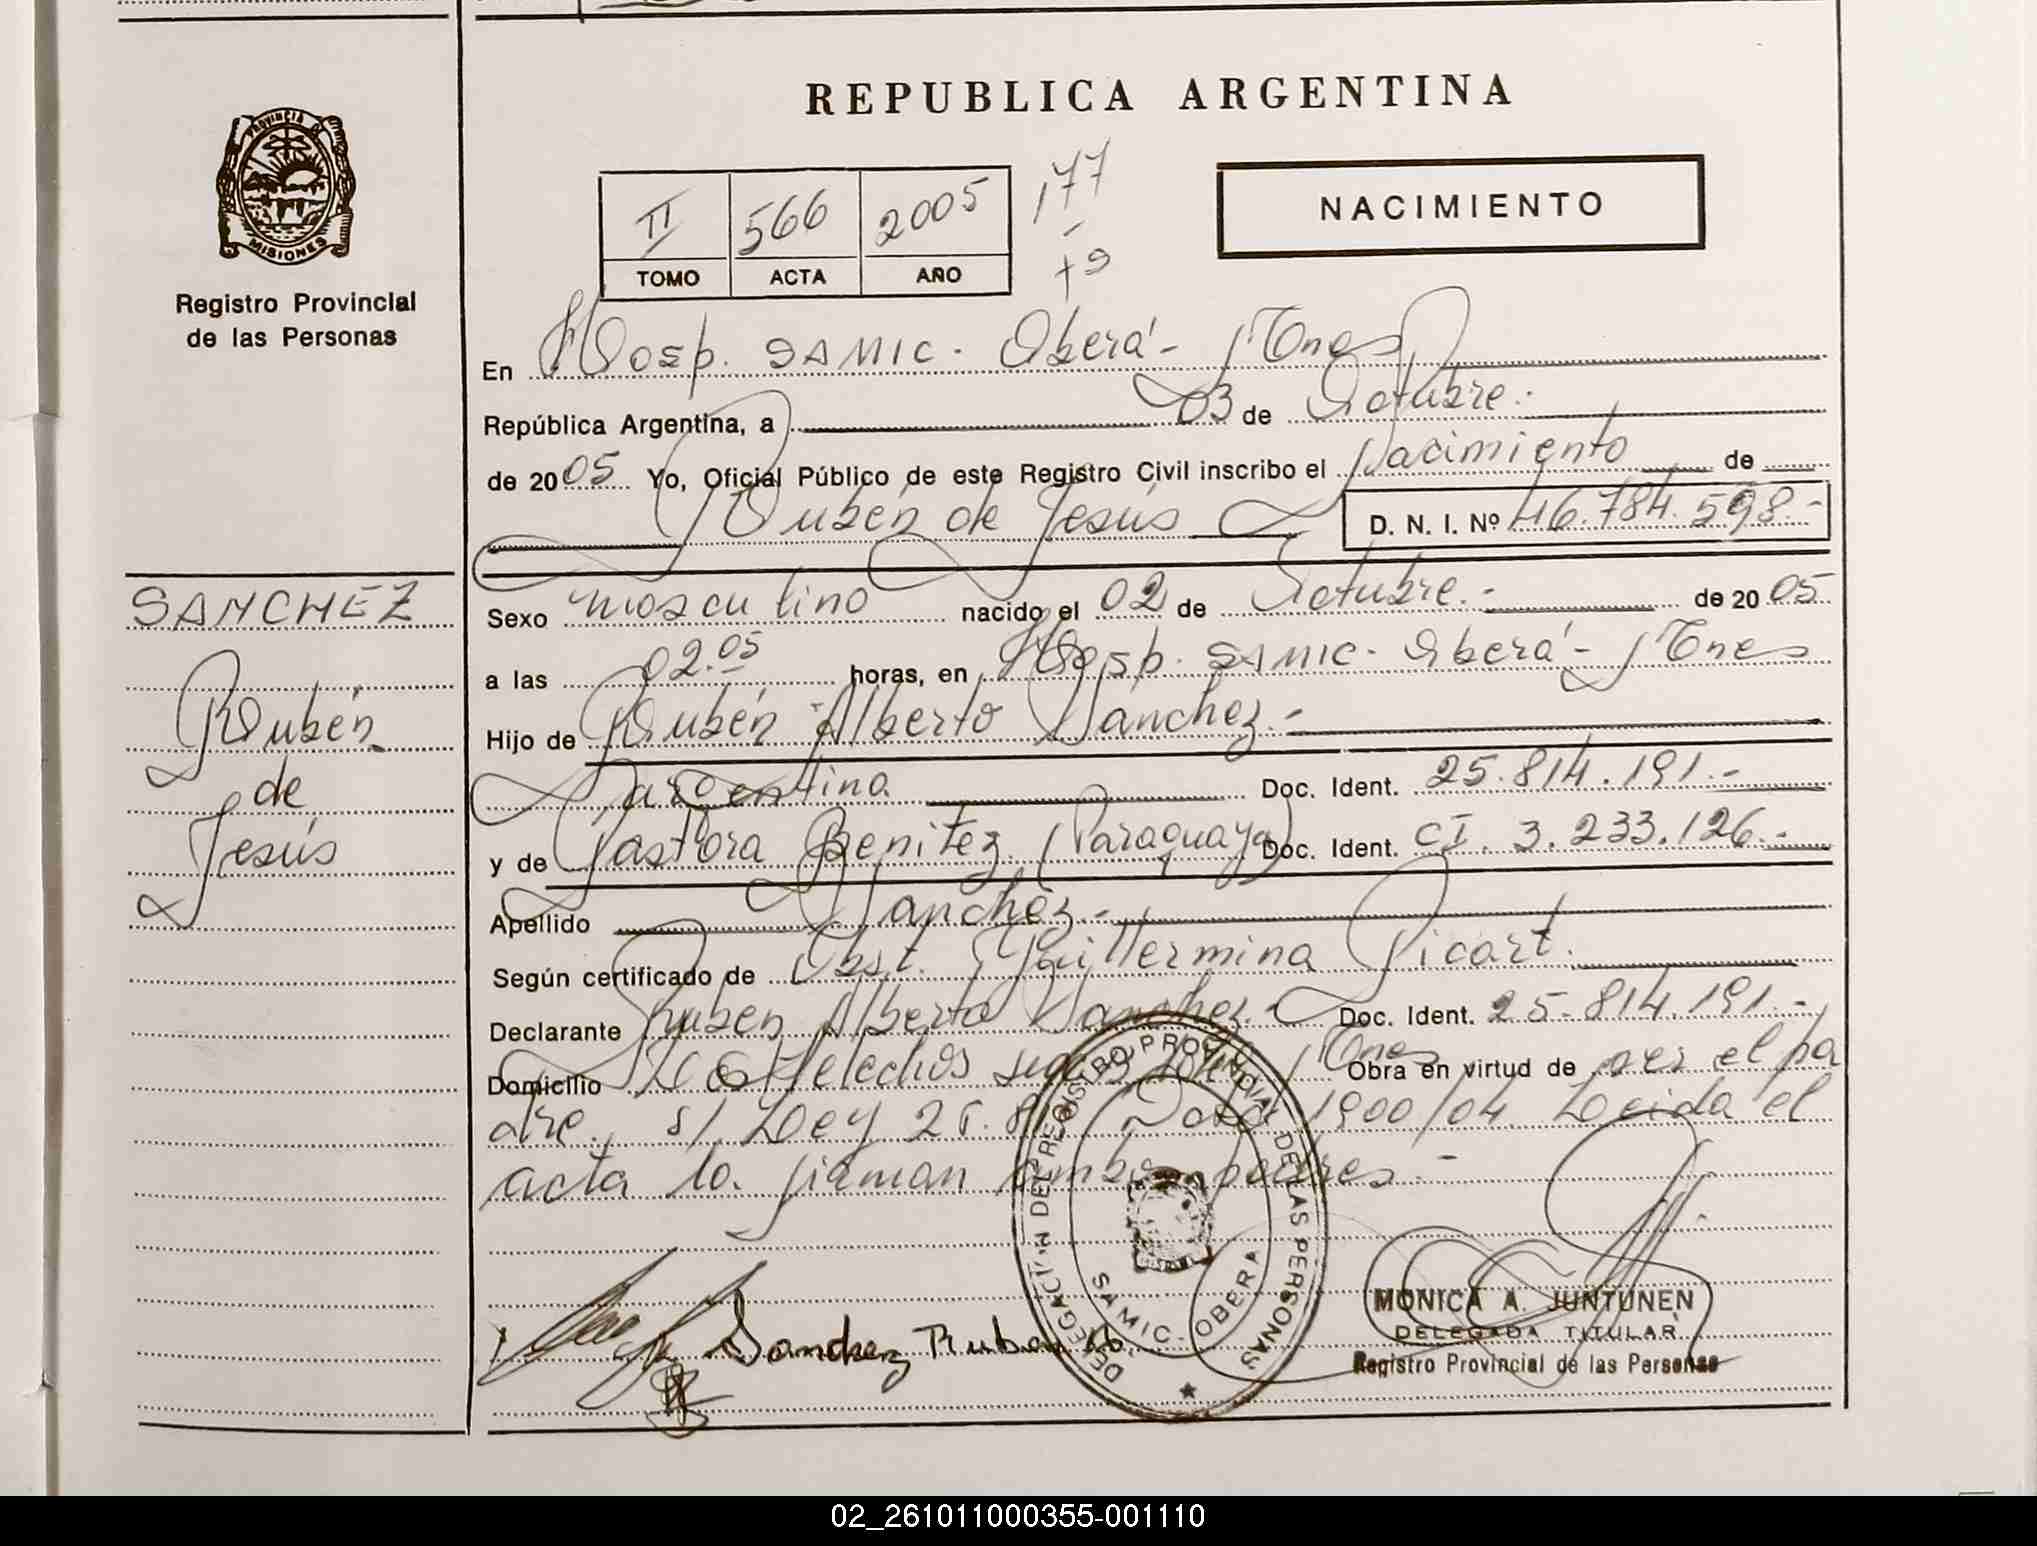 REPUBLICA ARGENTINA
PROVINCIA DE
MISIONES
Registro Provincial
de las Personas
II 566 2005
TOMO ACTA AÑO
177
NACIMIENTO
En Hosp. SAMIC. Oberá - Mnes
República Argentina, a 03 de Octubre.-
de 2005 Yo, Oficial Público de este Registro Civil inscribo el Nacimiento de
Rubén de Jesús D. N. I. Nº 46.784.598.-
SANCHEZ
Rubén
de
Jesús
Sexo masculino nacido el 02 de Octubre.- de 2005
a las 02.05 horas, en Hosp. SAMIC. Oberá - Mnes
Hijo de Rubén Alberto Sanchez.-
argentino Doc. Ident. 25.814.191.-
y de Pastora Benitez (Paraguaya) Doc. Ident. CI. 3.233.126.-
Apellido Sanchez.-
Según certificado de Obst. Guillermina Picart.
Declarante Ruben Alberto Sanchez.- Doc. Ident. 25.814.191.-
Domicilio Los Helechos Mnes Obra en virtud de ser el pa
dre., s/ Ley 1900/04. Leida el
acta la firman ambos padres.-
DELEGACIÓN DEL REGISTRO PROVINCIAL DE LAS PERSONAS
SAMIC - OBERA
Sanchez Ruben Ab.
MONICA A. JUNTUNEN
DELEGADA TITULAR
Registro Provincial de las Personas
02_261011000355-001110